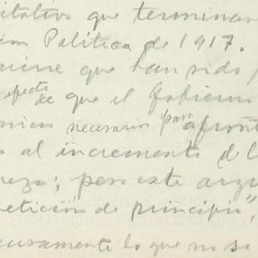 itativo que terminar
Política de 1917.
que han sido
efecto de que el Gobierno
necesarios para afront
al incremento de l
reza; pero este arg
etición de principio",
curamente lo que no se